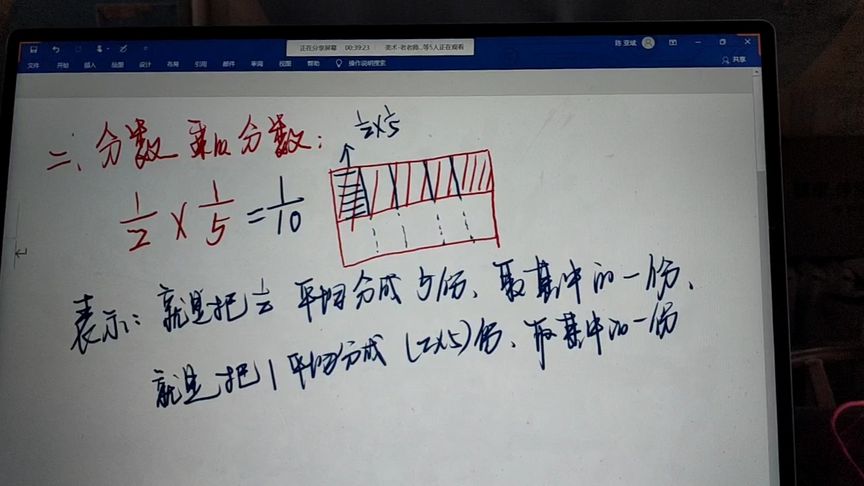 正在分享屏幕 00:39:23 美术-老老师...等5人正在观看
陈 亚斌
文件 开始 插入 绘图 设计 布局 引用 邮件 审阅 视图 帮助 操作说明搜索
共享
二、分数乘以分数:
1/2×1/5
1/2×1/5=1/10
表示:就是把1/2平均分成5份、取其中的一份、
就是把1平均分成(2×5)份、取其中的一份